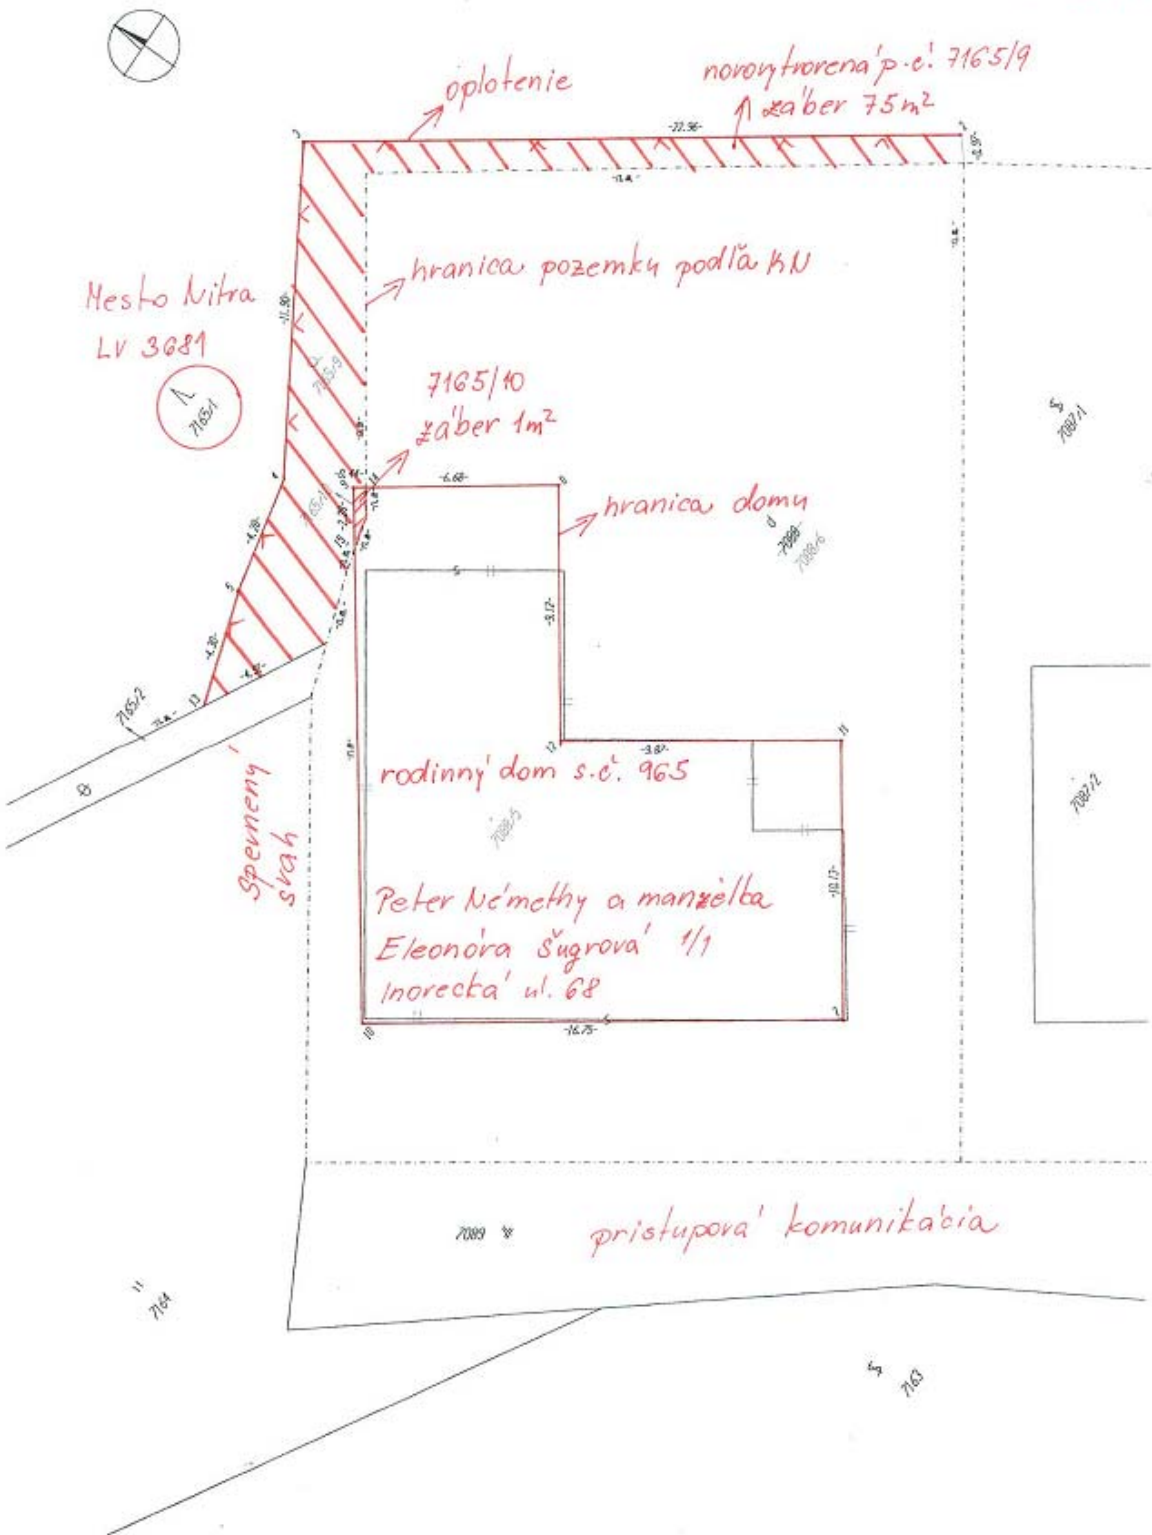 oplotenie
novovytvorená p.č. 7165/9
záber 75m²
3
-22.96-
2
-0.97-
hranica pozemku podľa KN
Mesto Nitra
LV 3681
-11.90-
7165/9
7165/1
7165/10
záber 1m²
7087/1
4
-6.68-
9
hranica domu
-7088-
7088/6
-4.78-
5
-9.12-
-4.30-
13
7165/2
12
-9.87-
11
rodinný dom s.č. 965
7087/2
Spevnený
svah
7088/5
Peter Némethy a manželka
Eleonóra Šugrová 1/1
Inorecká ul. 68
-10.13-
10
-16.75-
7089
prístupová komunikácia
7164
7163